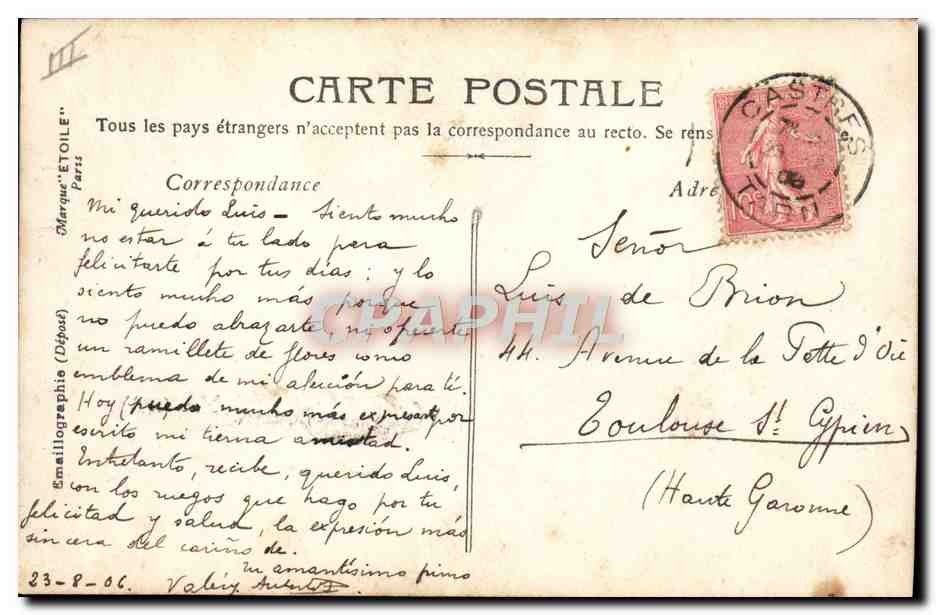 III
CARTE POSTALE
Tous les pays étrangers n'acceptent pas la correspondance au recto. Se rens
Correspondance
Adre
CASTRES
TARN
06
Mi querido Luis – Siento mucho
no estar á tu lado para
felicitarte por tus días; y lo
siento mucho más porque
no puedo abrazarte, ni
un ramillete de flores como
emblema de mi afección para ti.
Hoy puedo mucho más expresarte por
escrito mi tierna amistad.
Entretanto, recibe, querido Luis,
con los ruegos que hago por tu
felicidad y salud, la expresión más
sincera del cariño de.
tu amantísimo primo
23-8-06. Valéry
Señor
Luis de Brion
44. Avenue de la Patte d'Oie
Toulouse St Cyprien
(Haute Garonne)
Emaillographie (Déposé) Marque "ETOILE"
Paris
CPAPHIL